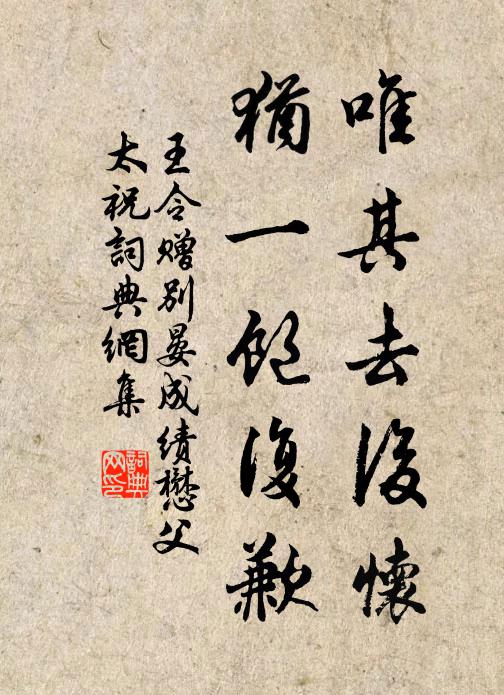 唯其去後懷
猶一飽復歉
王令贈別晏成績懋父
太祝詞典網集
詞典網印